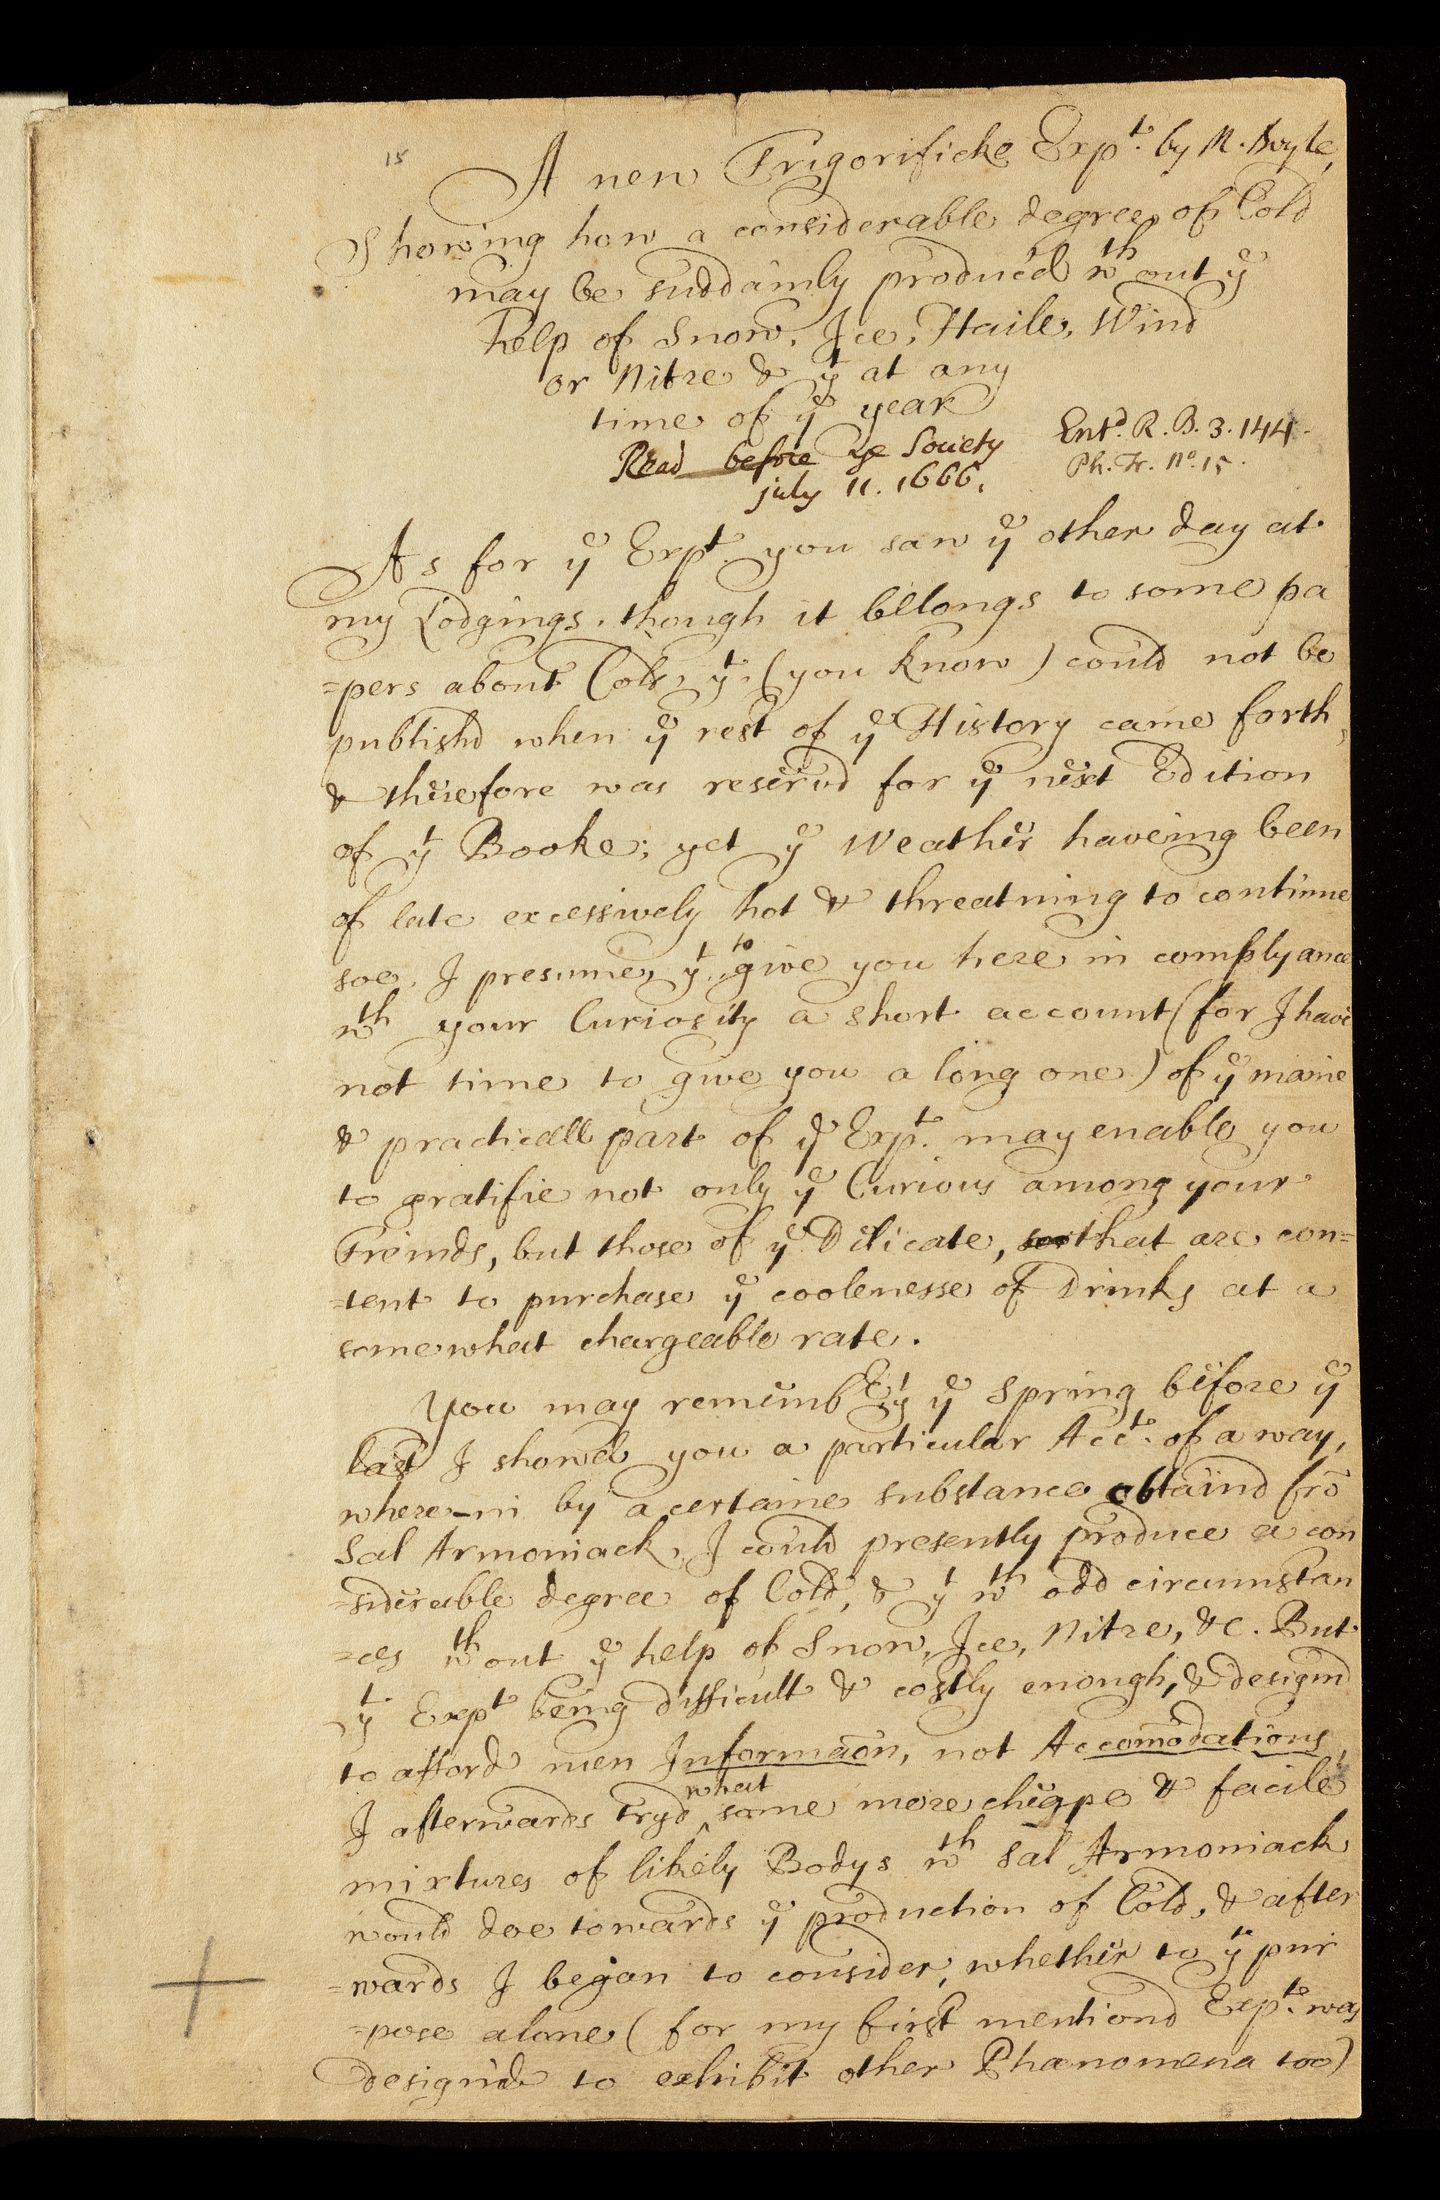 15
A new Frigorificke Expt. by M. Boyle,
Showing how a considerable degree of Cold
may be suddainly produc'd wth out ye
help of Snow, Ice, Haile, Wind
or Nitre & yt at any
time of ye year
Read before ye Society
july 11. 1666.
Entd. R. B. 3. 144.
Ph. Tr. No. 15.
As for ye Expt. you saw ye other day at
my Lodgings, though it belongs to some pa
=pers about Cold, yt (you know) could not be
publishd when ye rest of ye History came forth,
& therefore was reservd for ye next Edition
of yt Booke; yet ye Weather haveing been
of late excessively hot & threatning to continue
soe, I presume, yt to give you here in complyance
wth your Curiosity a short account (for I have
not time to give you a long one) of ye maine
& practicall part of ye Expt. may enable you
to gratifie not only ye Curious among your
Freinds, but those of ye Dilicate, that are con=
=tent to purchase ye coolenesse of Drinks at a
somewhat chargeable rate.
You may rememb er yt ye Spring before ye
last I showed you a particular Acct. of a way,
where-in by a certaine substance obtaind frō
Sal Armoniack, I could presently produce a con
=siderable degree of Cold, & yt wth odd circumstan
=ces wth out ye help of Snow, Ice, Nitre, &c. But
yt Expt being difficult & costly enough, & designd
to afford men Informaōn, not Accomodations,
I afterwards tryd what some more cheape & facile
mixtures of likely Bodys wth Sal Armoniack
would doe towards ye production of Cold, & after
=wards I began to consider, whether to yt pur
=pose alone (for my first mentiond Expt. was
design'd to exhibit other Phænomena too)